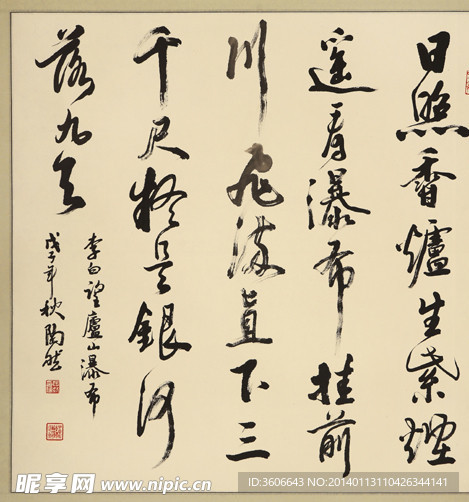 日照香爐生紫煙
遥看瀑布挂前
川飛流直下三
千尺疑是銀河
落九天
李白望廬山瀑布
戊子年秋陶然
昵享网 www.nipic.cn
ID:3606643 NO:20140113110426344141